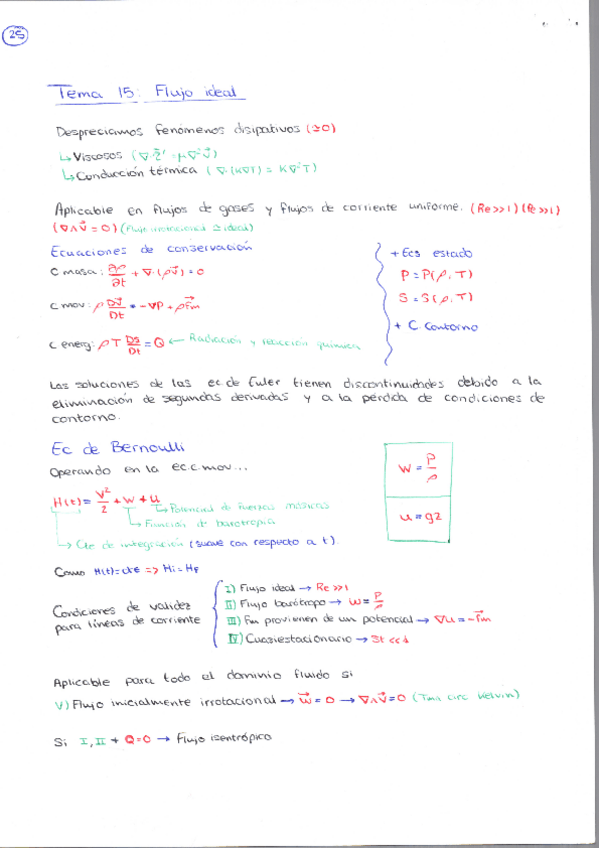 25
Tema 15: Flujo ideal
Despreciamos fenómenos disipativos (≃0)
↳ Viscosos (∇·τ̄' = μ∇²v̄)
↳ Conducción térmica (∇·(K∇T) = K∇²T)
Aplicable en flujos de gases y flujos de corriente uniforme. (Re>>1) (Pe>>1)
(∇∧v̄ = 0) (Flujo irrotacional ≅ ideal)
Ecuaciones de conservación
C masa: ∂ρ/∂t + ∇·(ρv̄) = 0
C mov: ρ Dv̄/Dt = -∇P + ρf̄m
C energ: ρT Ds/Dt = Q ← Radiación y reacción química
+ Ecs estado
P = P(ρ,T)
S = S(ρ,T)
+ C Contorno
Las soluciones de las ec. de Euler tienen discontinuidades debido a la
eliminación de segundas derivadas y a la pérdida de condiciones de
contorno.
Ec de Bernoulli
Operando en la ec.c.mov...
H(t) = v²/2 + w + u
↳ Potencial de fuerzas másicas
↳ Función de barotropía
↳ Cte de integración (suave con respecto a t).
w = P/ρ
u = gz
Como H(t)=cte => Hi = HF
Condiciones de validez
para líneas de corriente
I) Flujo ideal → Re>>1
II) Flujo barótropo → w = P/ρ
III) Fm provienen de un potencial → ∇u = -f̄m
IV) Cuasiestacionario → St <<1
Aplicable para todo el dominio fluido si
V) Flujo inicialmente irrotacional → w̄ = 0 → ∇∧v̄ = 0 (Tma circ Kelvin)
Si I, II + Q=0 → Flujo isentrópico